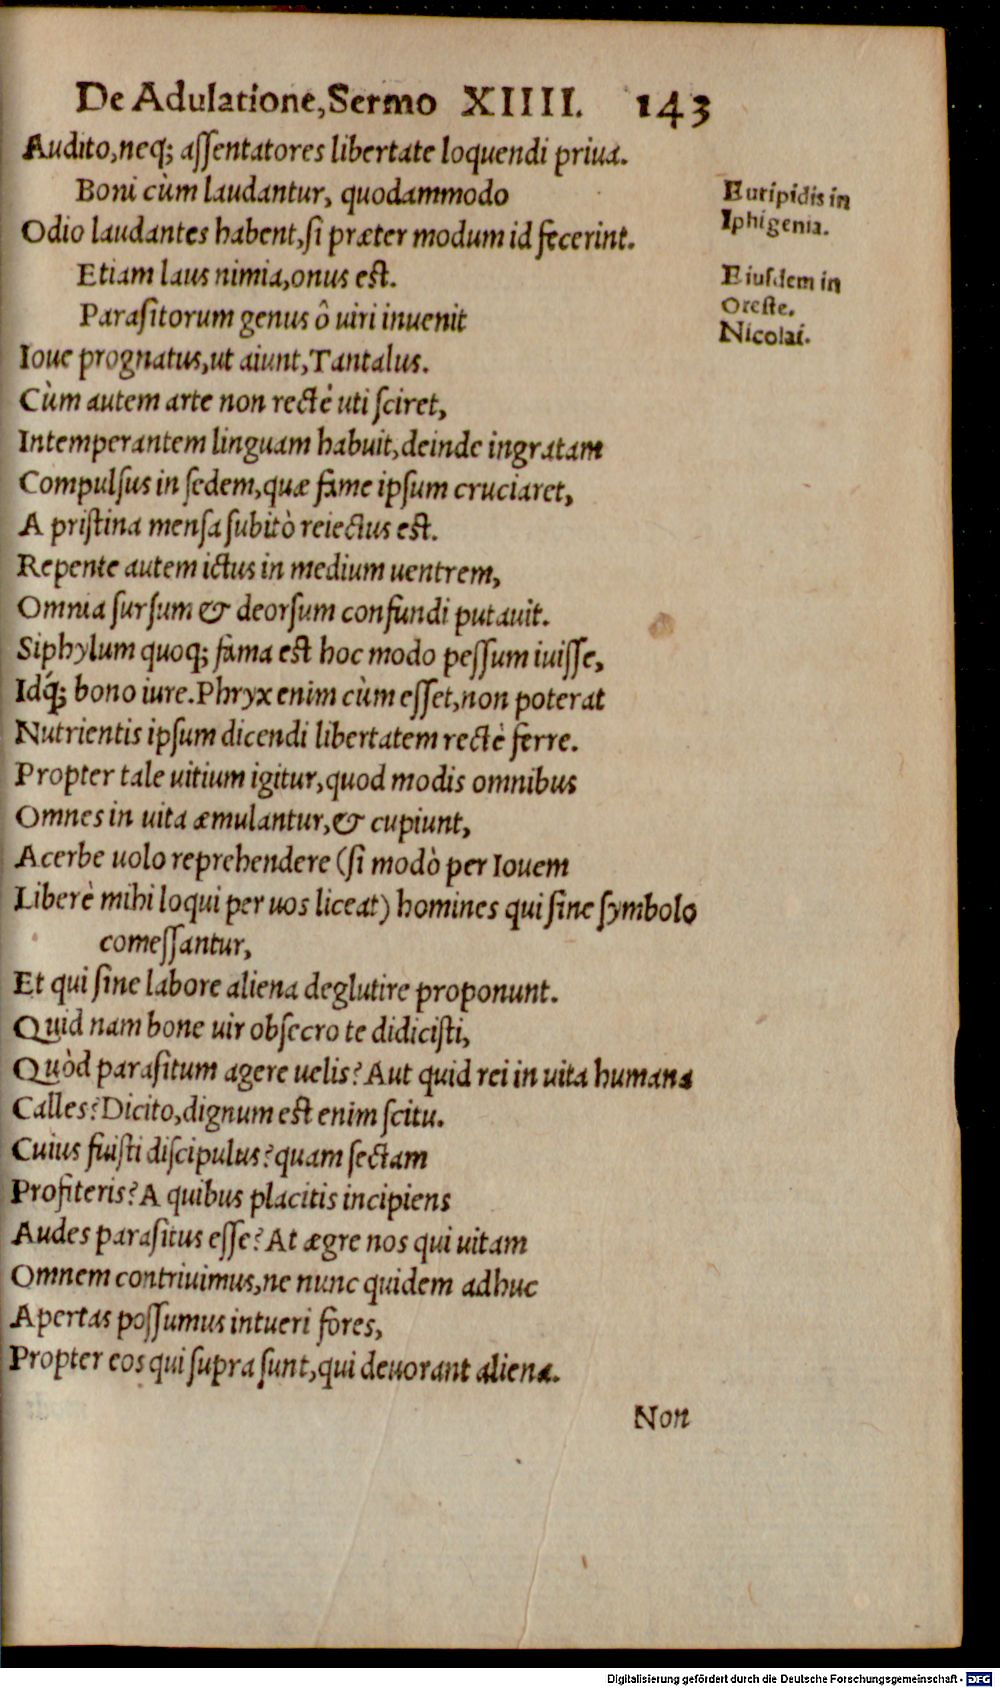 De Adulatione, Sermo XIIII. 143
Audito, neq; aſſentatores libertate loquendi priua.
Boni cùm laudantur, quodammodo
Euripidis in
Iphigenia.
Odio laudantes habent, ſi præter modum id fecerint.
Etiam laus nimia, onus eſt.
Eiuſdem in
Oreſte.
Paraſitorum genus ô uiri inuenit
Nicolai.
Ioue prognatus, ut aiunt, Tantalus.
Cùm autem arte non rectè uti ſciret,
Intemperantem linguam habuit, deinde ingratam
Compulſus in ſedem, quæ fame ipſum cruciaret,
A priſtina menſa ſubitò reiectus eſt.
Repente autem ictus in medium uentrem,
Omnia ſurſum & deorſum confundi putauit.
Siphylum quoq; fama eſt hoc modo peſſum iuiſſe,
Idq́; bono iure. Phryx enim cùm eſſet, non poterat
Nutrientis ipſum dicendi libertatem rectè ferre.
Propter tale uitium igitur, quod modis omnibus
Omnes in uita æmulantur, & cupiunt,
Acerbe uolo reprehendere (ſi modò per Iouem
Liberè mihi loqui per uos liceat) homines qui ſine ſymbolo
comeſſantur,
Et qui ſine labore aliena deglutire proponunt.
Quid nam bone uir obſecro te didiciſti,
Quòd paraſitum agere uelis? Aut quid rei in uita humana
Calles? Dicito, dignum eſt enim ſcitu.
Cuius fuiſti diſcipulus? quam ſectam
Profiteris? A quibus placitis incipiens
Audes paraſitus eſſe? At ægre nos qui uitam
Omnem contriuimus, ne nunc quidem adhuc
Apertas poſſumus intueri fores,
Propter eos qui ſupra ſunt, qui deuorant aliena.
Non
Digitalisierung gefördert durch die Deutsche Forschungsgemeinschaft - DFG